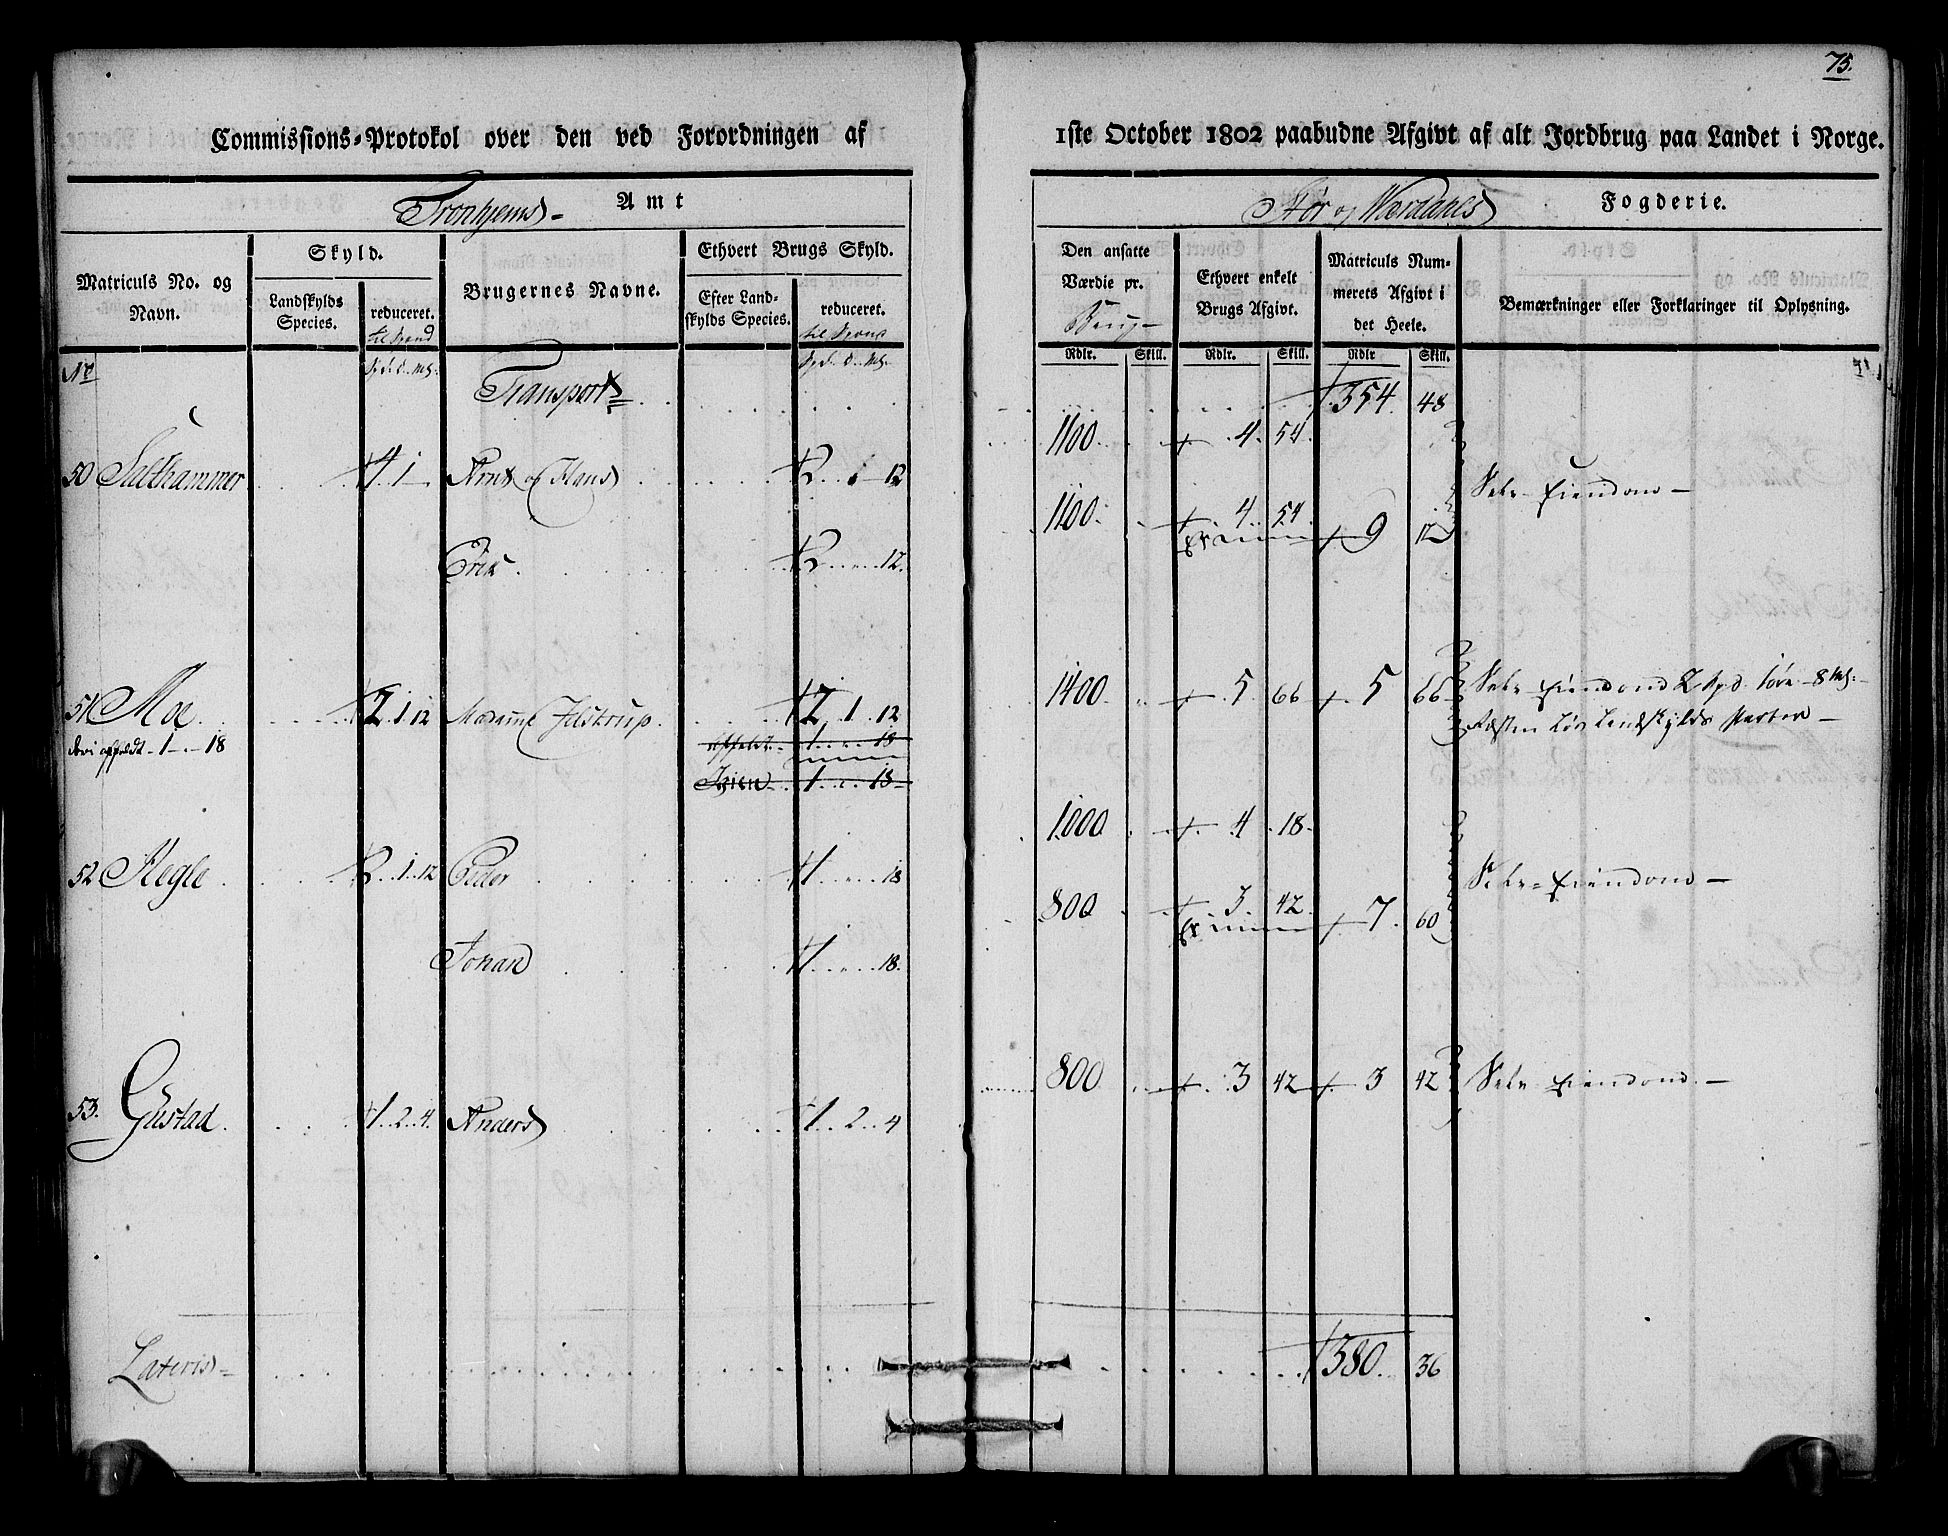 75.
Commissions-Protokol over den ved Forordningen af 1ste October 1802 paabudne Afgivt af alt Jordbrug paa Landet i Norge.
Tronhjems Amt
Stør og Værdahls Fogderie.
Matriculs No. og Navn.
Skyld.
Landskylds Species.
reduceret.
Brugernes Navne.
Ethvert Brugs Skyld.
Efter Landskylds Species.
reduceret.
Den ansatte Værdie pr. Brug
Ethvert enkelt Brugs Afgivt.
Matriculs Nummerets Afgivt i det Heele.
Bemærkninger eller Forklaringer til Oplysning.
Rdlr. Skill. Rdlr. Skill. Rdlr Skill.
No
Transport 354. 48
50 Salthammer 4 1 - Arnt og Hans 2 1 12 1100 4. 54.
Erik 2 " 12. 1100 4 54 9 12
Selv Eiendom
51 Moe 2. 1. 12 Madame Jelstrup 2. 1. 12 1400 5 66 5 66
deri affældt - 1 - 18
affældt 1 " 18
Igien 1 " 18
52 Stegle 2. 1. 12 Peder 1 " 18 1000 4 18
Johan 1 " 18. 800 3. 42. 7. 60
Selv Eiendom
53. Gustad 1. 2. 4. Anders 1. 2. 4 800 3 42 3 42
Selv Eiendom
Lateris 380. 36